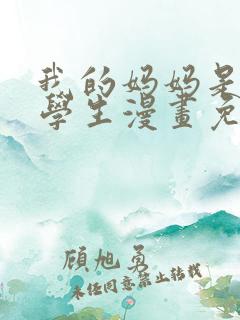 我的妈妈是
學生漫畫免
顾旭勇
未任同意禁止转载